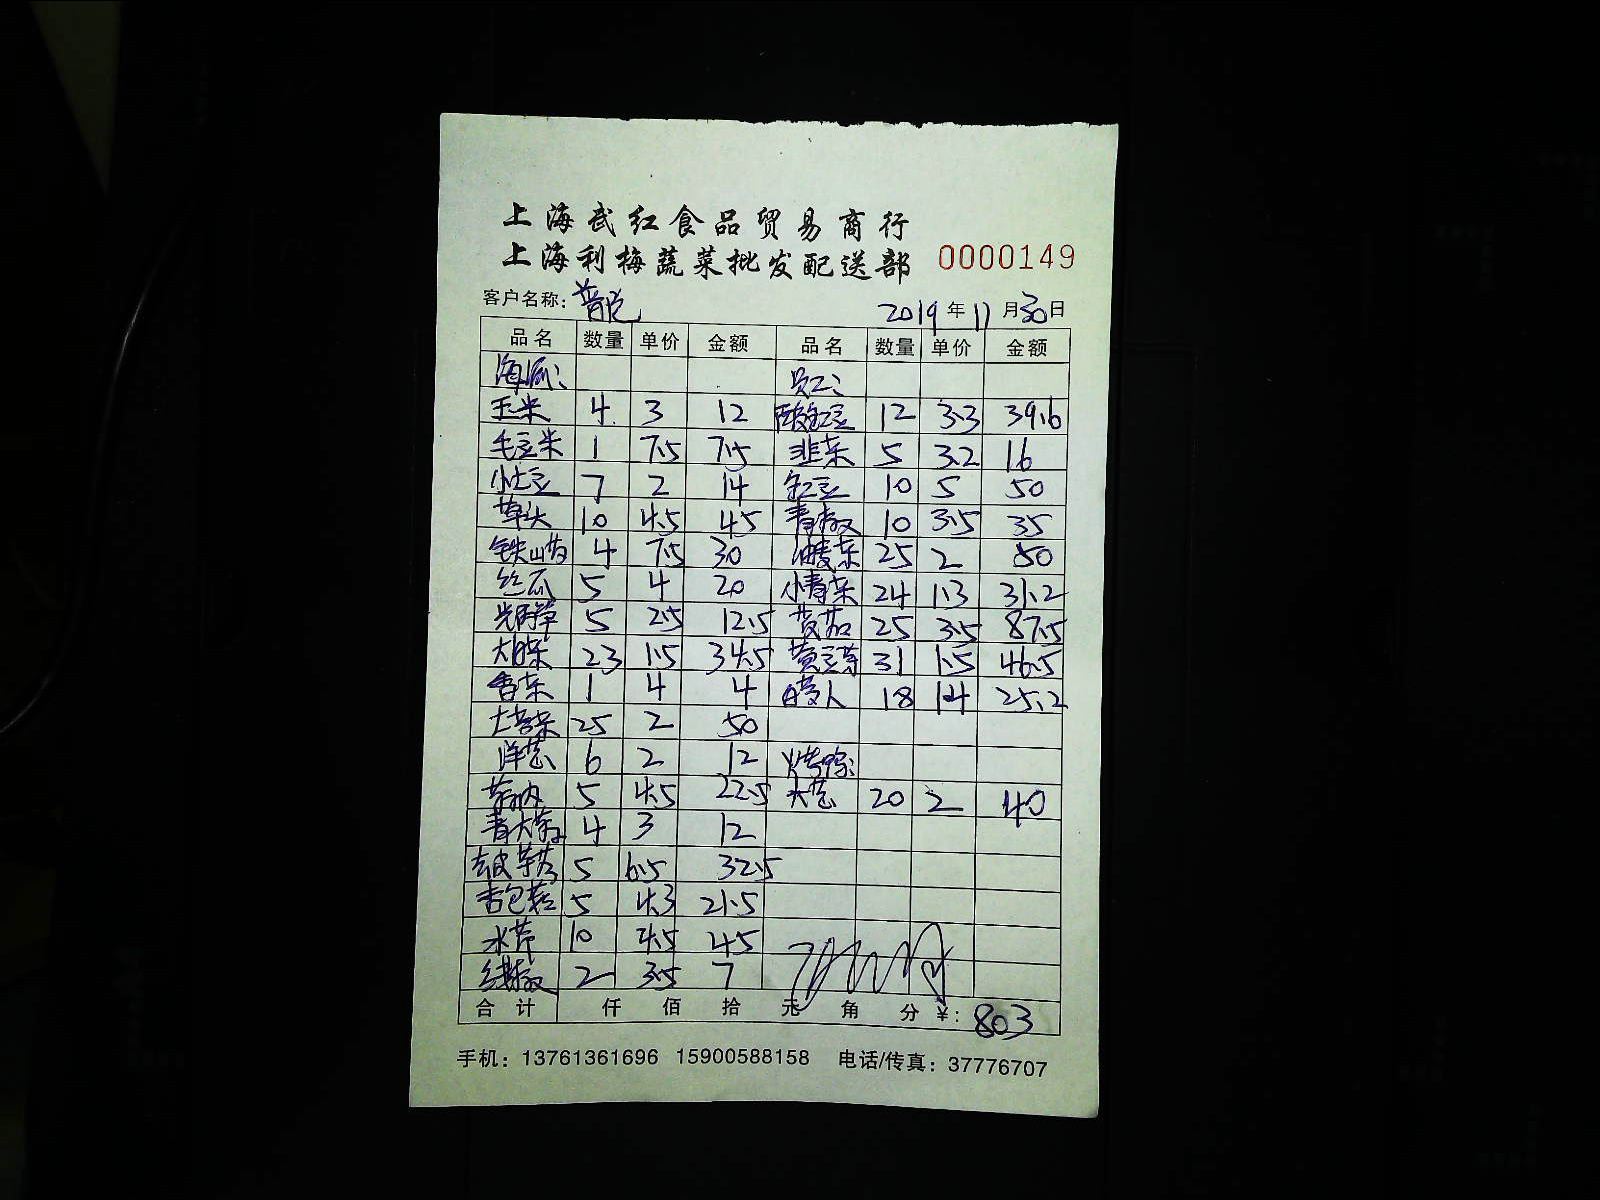 上海武红食品贸易商行
上海利梅蔬菜批发配送部 0000149
客户名称: 2019年11月30日
品名 数量 单价 金额 品名 数量 单价 金额
员工:
玉米 4 3 12 酸豇豆 12 3.3 39.6
毛豆米 1 7.5 7.5 韭菜 5 3.2 16
小土豆 7 2 14 豇豆 10 5 50
草头 10 4.5 45 青椒 10 3.5 35
铁山药 4 7.5 30 油麦菜 25 2 50
丝瓜 5 4 20 小青菜 24 1.3 31.2
5 2.5 12.5 25 3.5 87.5
大白菜 23 1.5 34.5 黄豆芽 31 1.5 46.5
香菜 1 4 4 18 1.4 25.2
25 2 50
洋葱 6 2 12
5 4.5 22.5 大葱 20 2 40
4 3 12
去皮 5 6.5 32.5
5 4.3 21.5
水芹 10 4.5 45
线椒 2 3.5 7
合计 仟 佰 拾 元 角 分 ¥: 803
手机: 13761361696 15900588158 电话/传真: 37776707